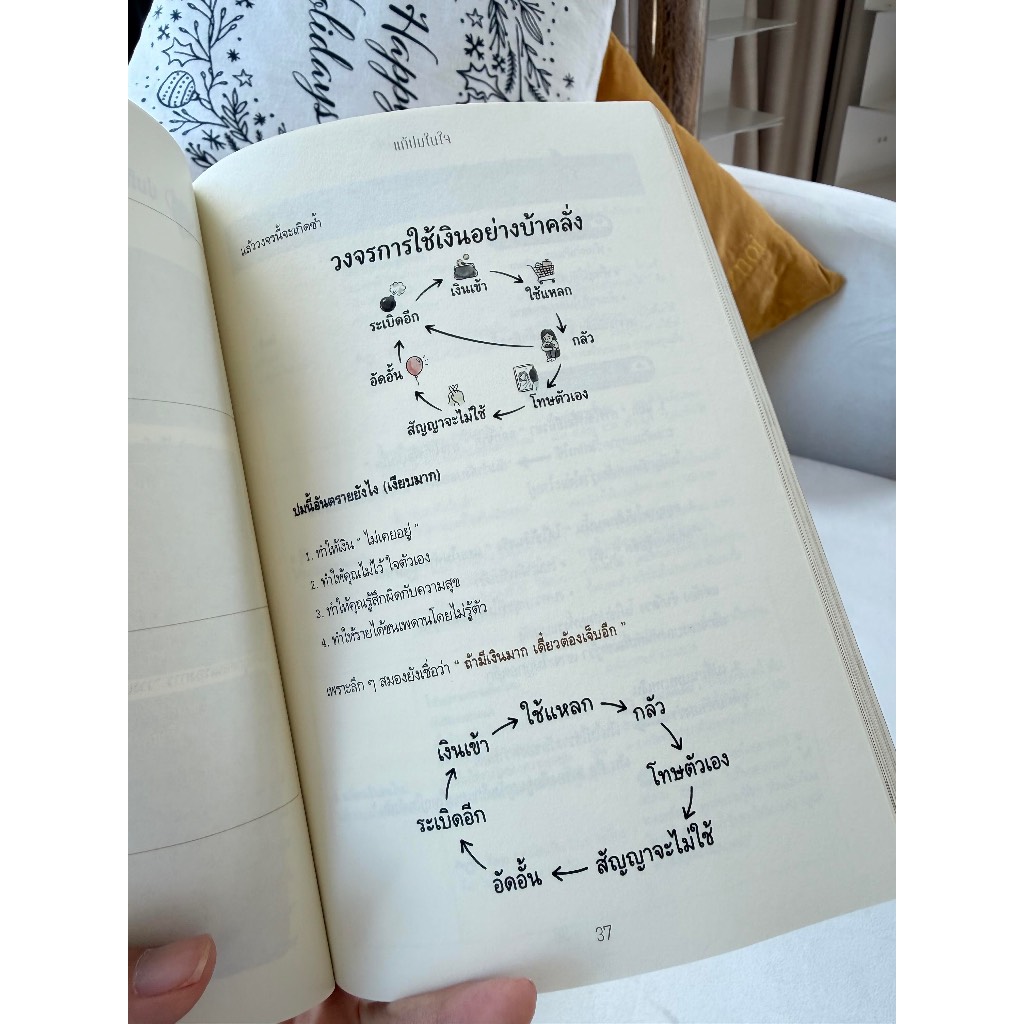 Happy
Holidays
แก้ปมในใจ
แล้ววงจรนี้จะเกิดซ้ำ
วงจรการใช้เงินอย่างบ้าคลั่ง
เงินเข้า
ใช้แหลก
ระเบิดอีก
กลัว
อัดอั้น
โทษตัวเอง
สัญญาจะไม่ใช้
ปมนี้อันตรายยังไง (เงียบมาก)
1. ทำให้เงิน " ไม่เคยอยู่ "
2. ทำให้คุณไม่ไว้ ใจตัวเอง
3. ทำให้คุณรู้สึกผิดกับความสุข
4. ทำให้รายได้ชนเพดานโดยไม่รู้ตัว
เพราะลึก ๆ สมองยังเชื่อว่า " ถ้ามีเงินมาก เดี๋ยวต้องเจ็บอีก "
ใช้แหลก
กลัว
เงินเข้า
โทษตัวเอง
ระเบิดอีก
สัญญาจะไม่ใช้
อัดอั้น
37